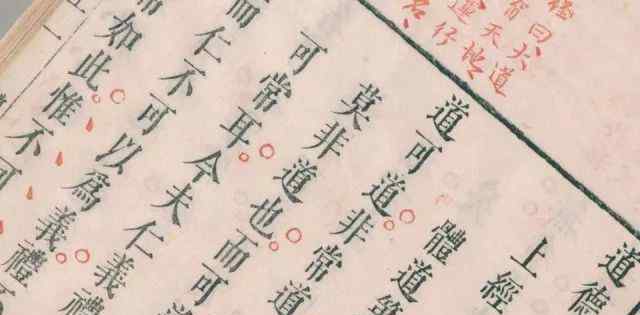 曰大道
天地
名
道德
上經
體道第
道可道。非常道
莫非道也。而可道
可常耳。今夫仁義禮
而仁不可以為義。禮不
如此。惟不可